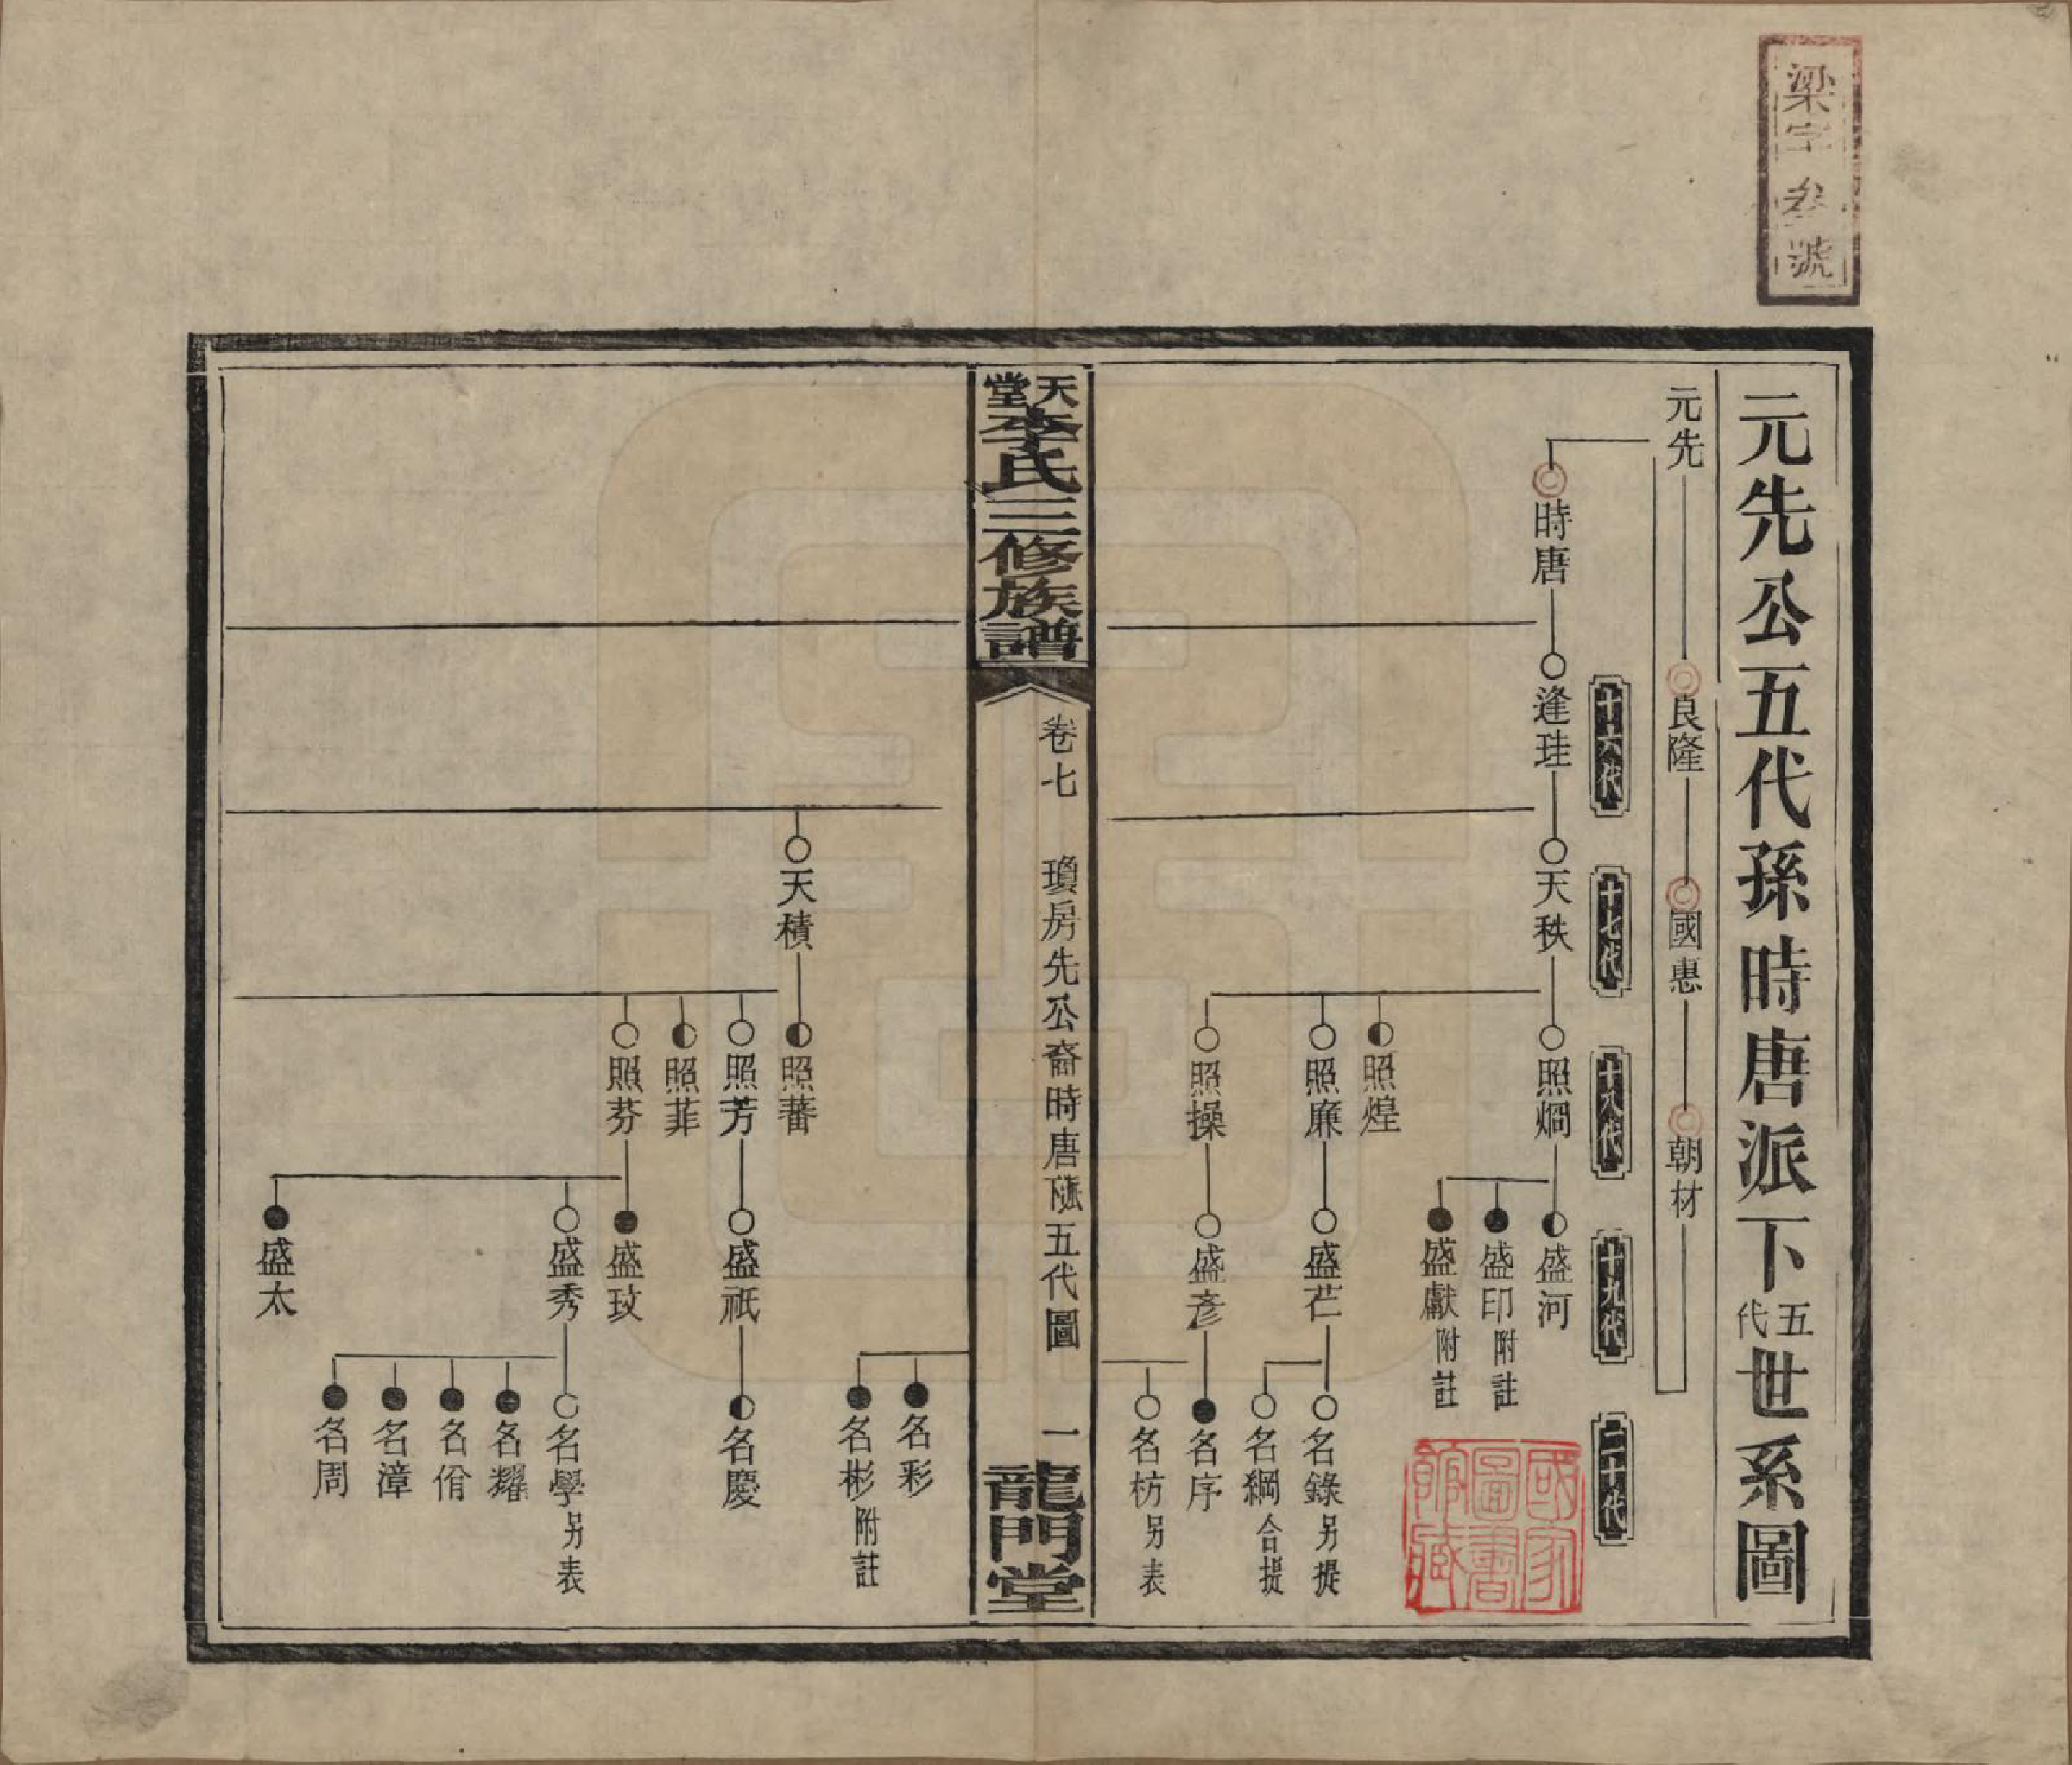 梁字叁號
元先公五代孫時唐派下五代世系圖
元先
良隆
國惠
朝材
十六代
十七代
十八代
十九代
二十代
時唐
逢珪
天秩
照烱
盛河
盛印 附註
盛獻 附註
照煌
照廉
盛芒
名錄 另提
名綱 合提
照操
盛彥
名序
名枋 另表
國家圖書館藏
天堂李氏三修族譜
卷七
瓊房先公裔時唐派下五代圖
一
龍門堂
名彩
名彬 附註
天積
照蕃
照芳
盛祇
名慶
照菲
照芬
盛玟
盛秀
名學 另表
名耀
名佾
名漳
名周
盛太